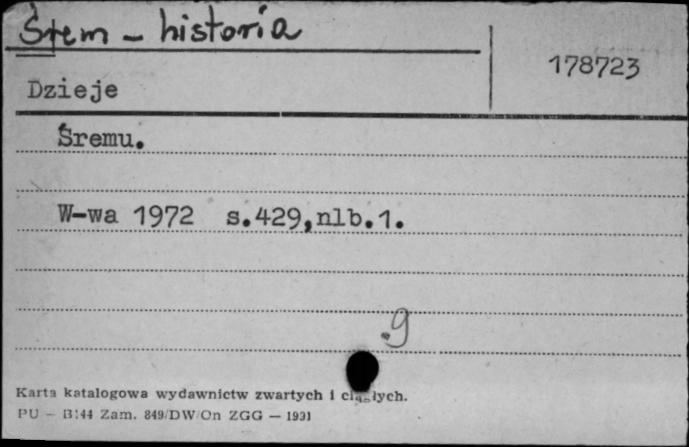 Śrem - historia
178723
Dzieje
Śremu.
W-wa 1972 s.429,nlb.1.
.g
Karta katalogowa wydawnictw zwartych i ciągłych.
PU - B144 Zam. 849/DW/On ZGG - 1991